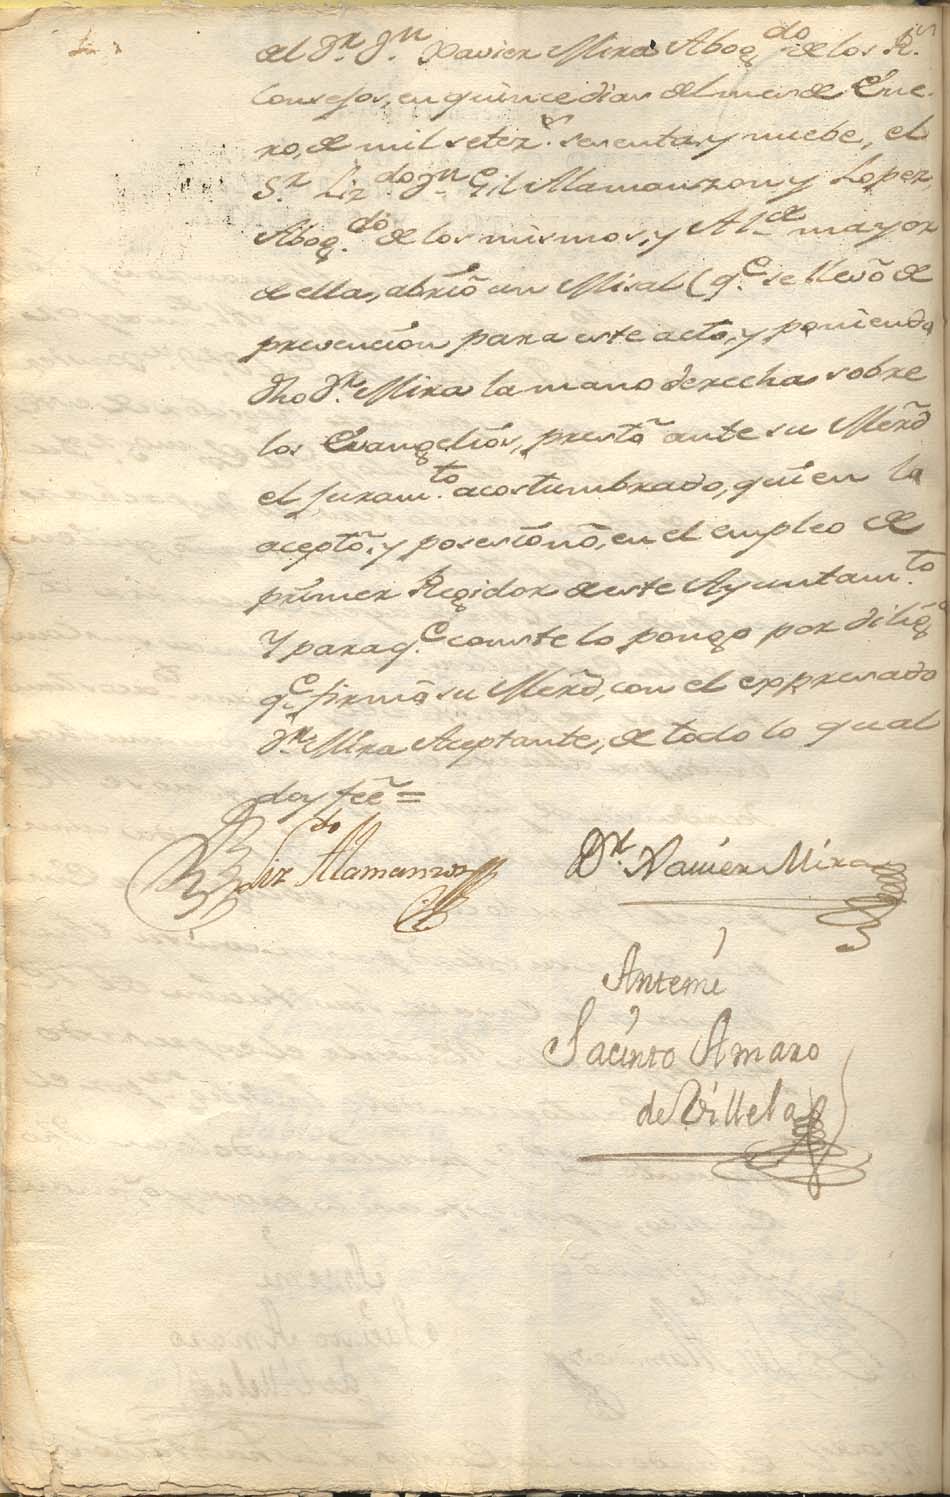 del Dr. Dn. Xavier Mira Abogdo. de los Rs.
Consejos, en quince dias del mes de Ene-
ro, de mil setezs. setenta y nuebe, el
Sr. Lizdo. Dn. Gil Alamanzon y Lopez,
Abogdo. de los mismos, y Alde. mayor
de ella, abrió un Misal (qe. se llevó de
prevencion para este acto, y poniendo
dho Dr. Mira la mano derecha sobre
los Evangelios, prestó ante su Merd.
el Juramto. acostumbrado, quien la
aceptó, y posesionó, en el empleo de
primer Regidor de este Ayuntamto.
Y para qe. conste lo pongo por dilig
qe. firmó su Merd, con el expresado
Dr. Mira Aceptante, de todo lo qual
doy fee =
Lizdo. Alamanzon
Dr. Xavier Mira
Antemi
Jacinto Amaro
de Villela